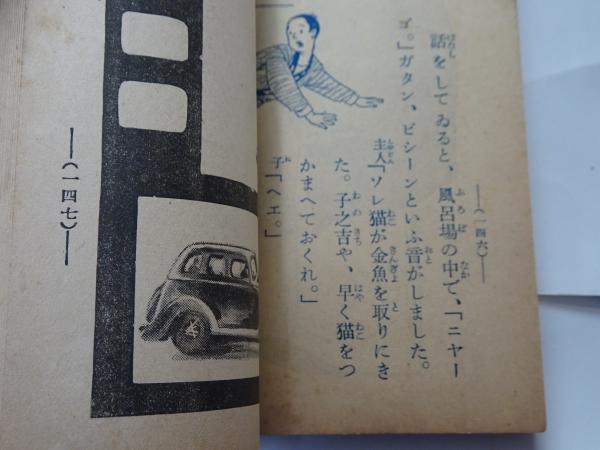 ―(一四六)―
話をしてゐると、風呂場の中で、「ニヤー
ゴ。」ガタン、ピシーンといふ音がしました。
主人「ソレ猫が金魚を取りにき
た。子之吉や、早く猫をつ
かまへておくれ。」
子「ヘエ。」
―(一四七)―